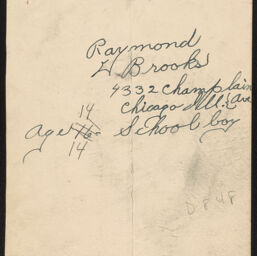 Raymond
W Brooks
4332 Champlain
Chicago Ill. Ave
14
Age 16 School boy
14